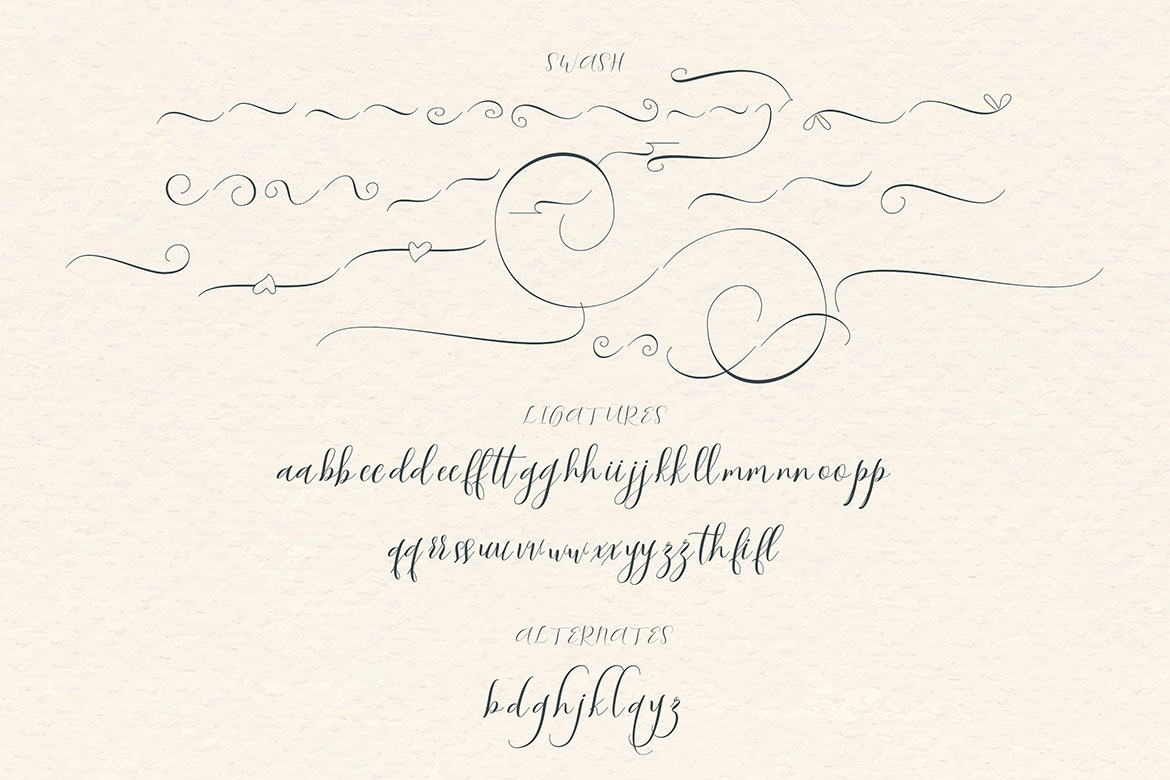 SWASH
LIGATURES
aabbccddeeffttgghhiijjkkllmmnnoopp
qqrrssuuvvwwxxyyzzthfifl
ALTERNATES
bdghjklqyz